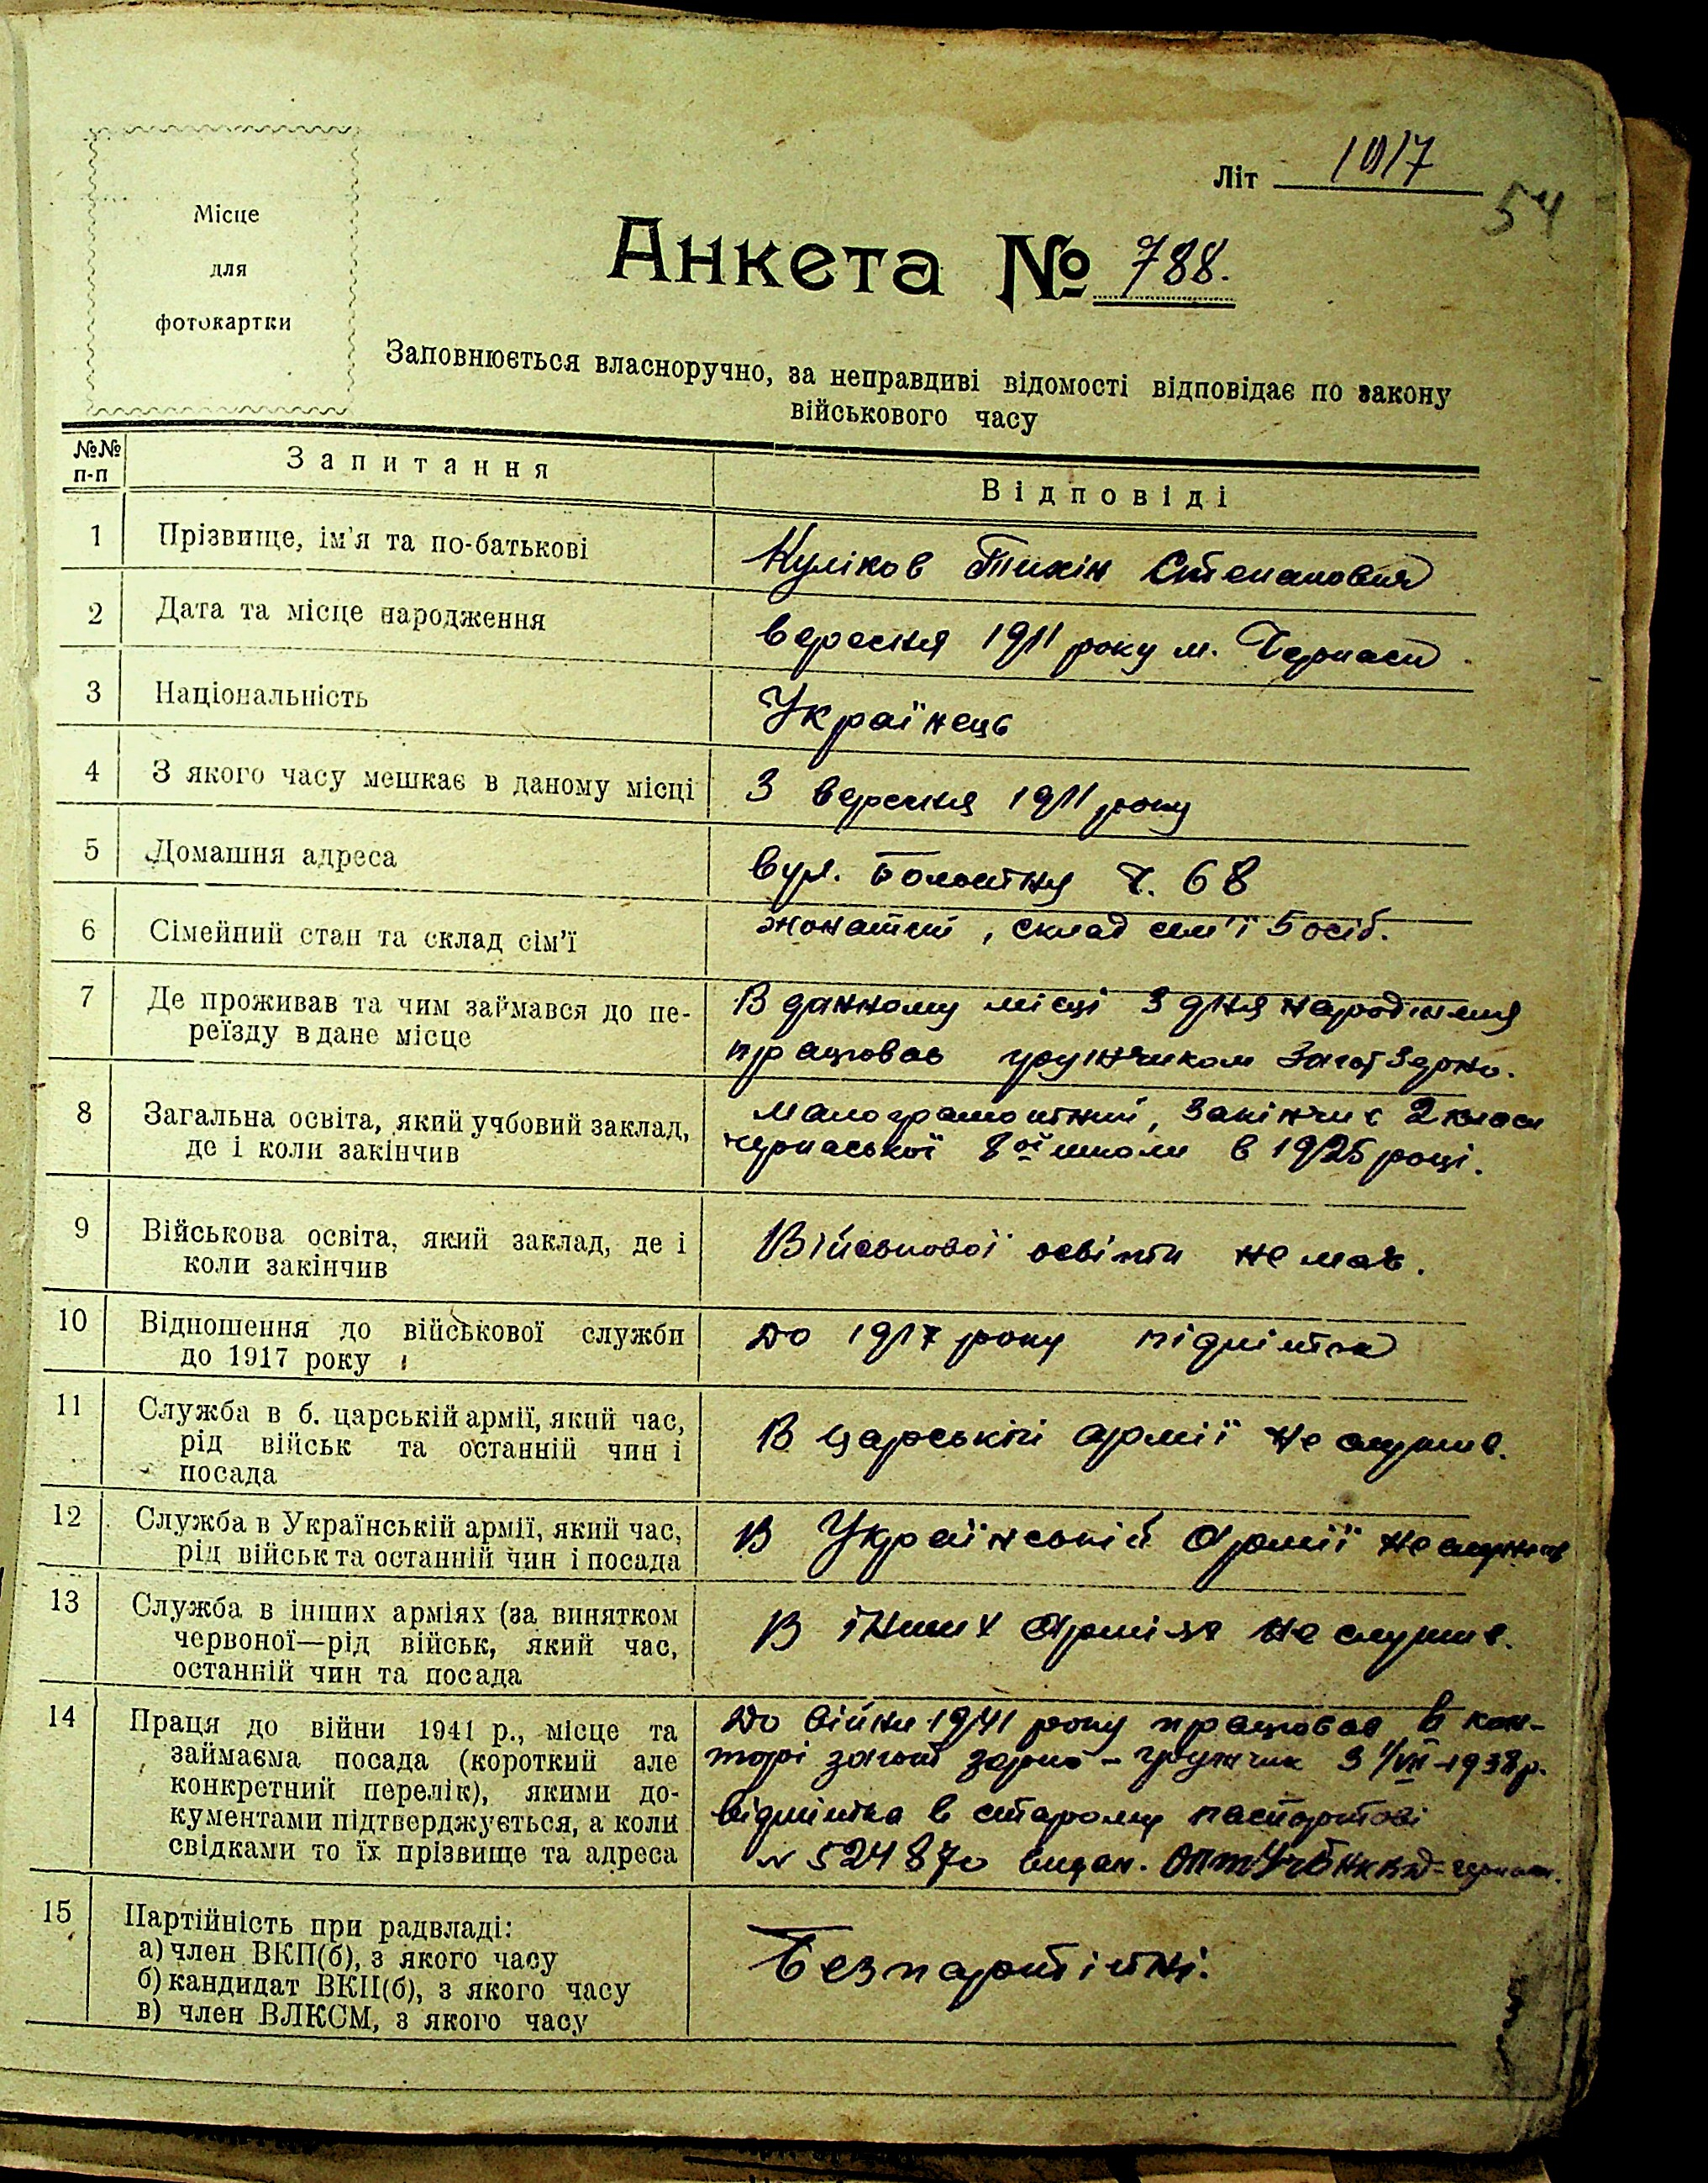 Місце
для
фотокартки
Літ 1017
54
Анкета № 788.
Заповнюється власноручно, за неправдиві відомості відповідає по закону
військового часу
№№
п-п
Запитання
Відповіді
1
Прізвище, ім'я та по-батькові
Куліков Тихін Степанович
2
Дата та місце народження
вересня 1911 року м. Черкаси
3
Національність
Українець
4
З якого часу мешкає в даному місці
З вересня 1911 року
5
Домашня адреса
вул. Болотня ч. 68
6
Сімейний стан та склад сім'ї
жонатий, склад сем'ї 5 осіб.
7
Де проживав та чим займався до пе-
реїзду в дане місце
В данному місці з дня народження
працював грузчиком Заготзерно.
8
Загальна освіта, який учбовий заклад,
де і коли закінчив
Малограмотний, закінчив 2 класи
черкаської 8ої школи в 1925 році.
9
Військова освіта, який заклад, де і
коли закінчив
Військової освіти не маю.
10
Відношення до військової служби
до 1917 року
до 1917 року підліток
11
Служба в б. царській армії, який час,
рід військ та останній чин і
посада
В царській армії не служив.
12
Служба в Українській армії, який час,
рід військ та останній чин і посада
В Українській Армії не служив
13
Служба в інших арміях (за винятком
червоної—рід військ, який час,
останній чин та посада
В інших Арміях не служив.
14
Праця до війни 1941 р., місце та
займаєма посада (короткий але
конкретний перелік), якими до-
кументами підтверджується, а коли
свідками то їх прізвище та адреса
До війни 1941 року працював в кон-
торі загот зерно - грузчик з 1/VII-1938 р.
відмітка в старому паспортові
№ 524870 видан.
15
Партійність при радвладі:
а) член ВКП(б), з якого часу
б) кандидат ВКП(б), з якого часу
в) член ВЛКСМ, з якого часу
Безпартійні.